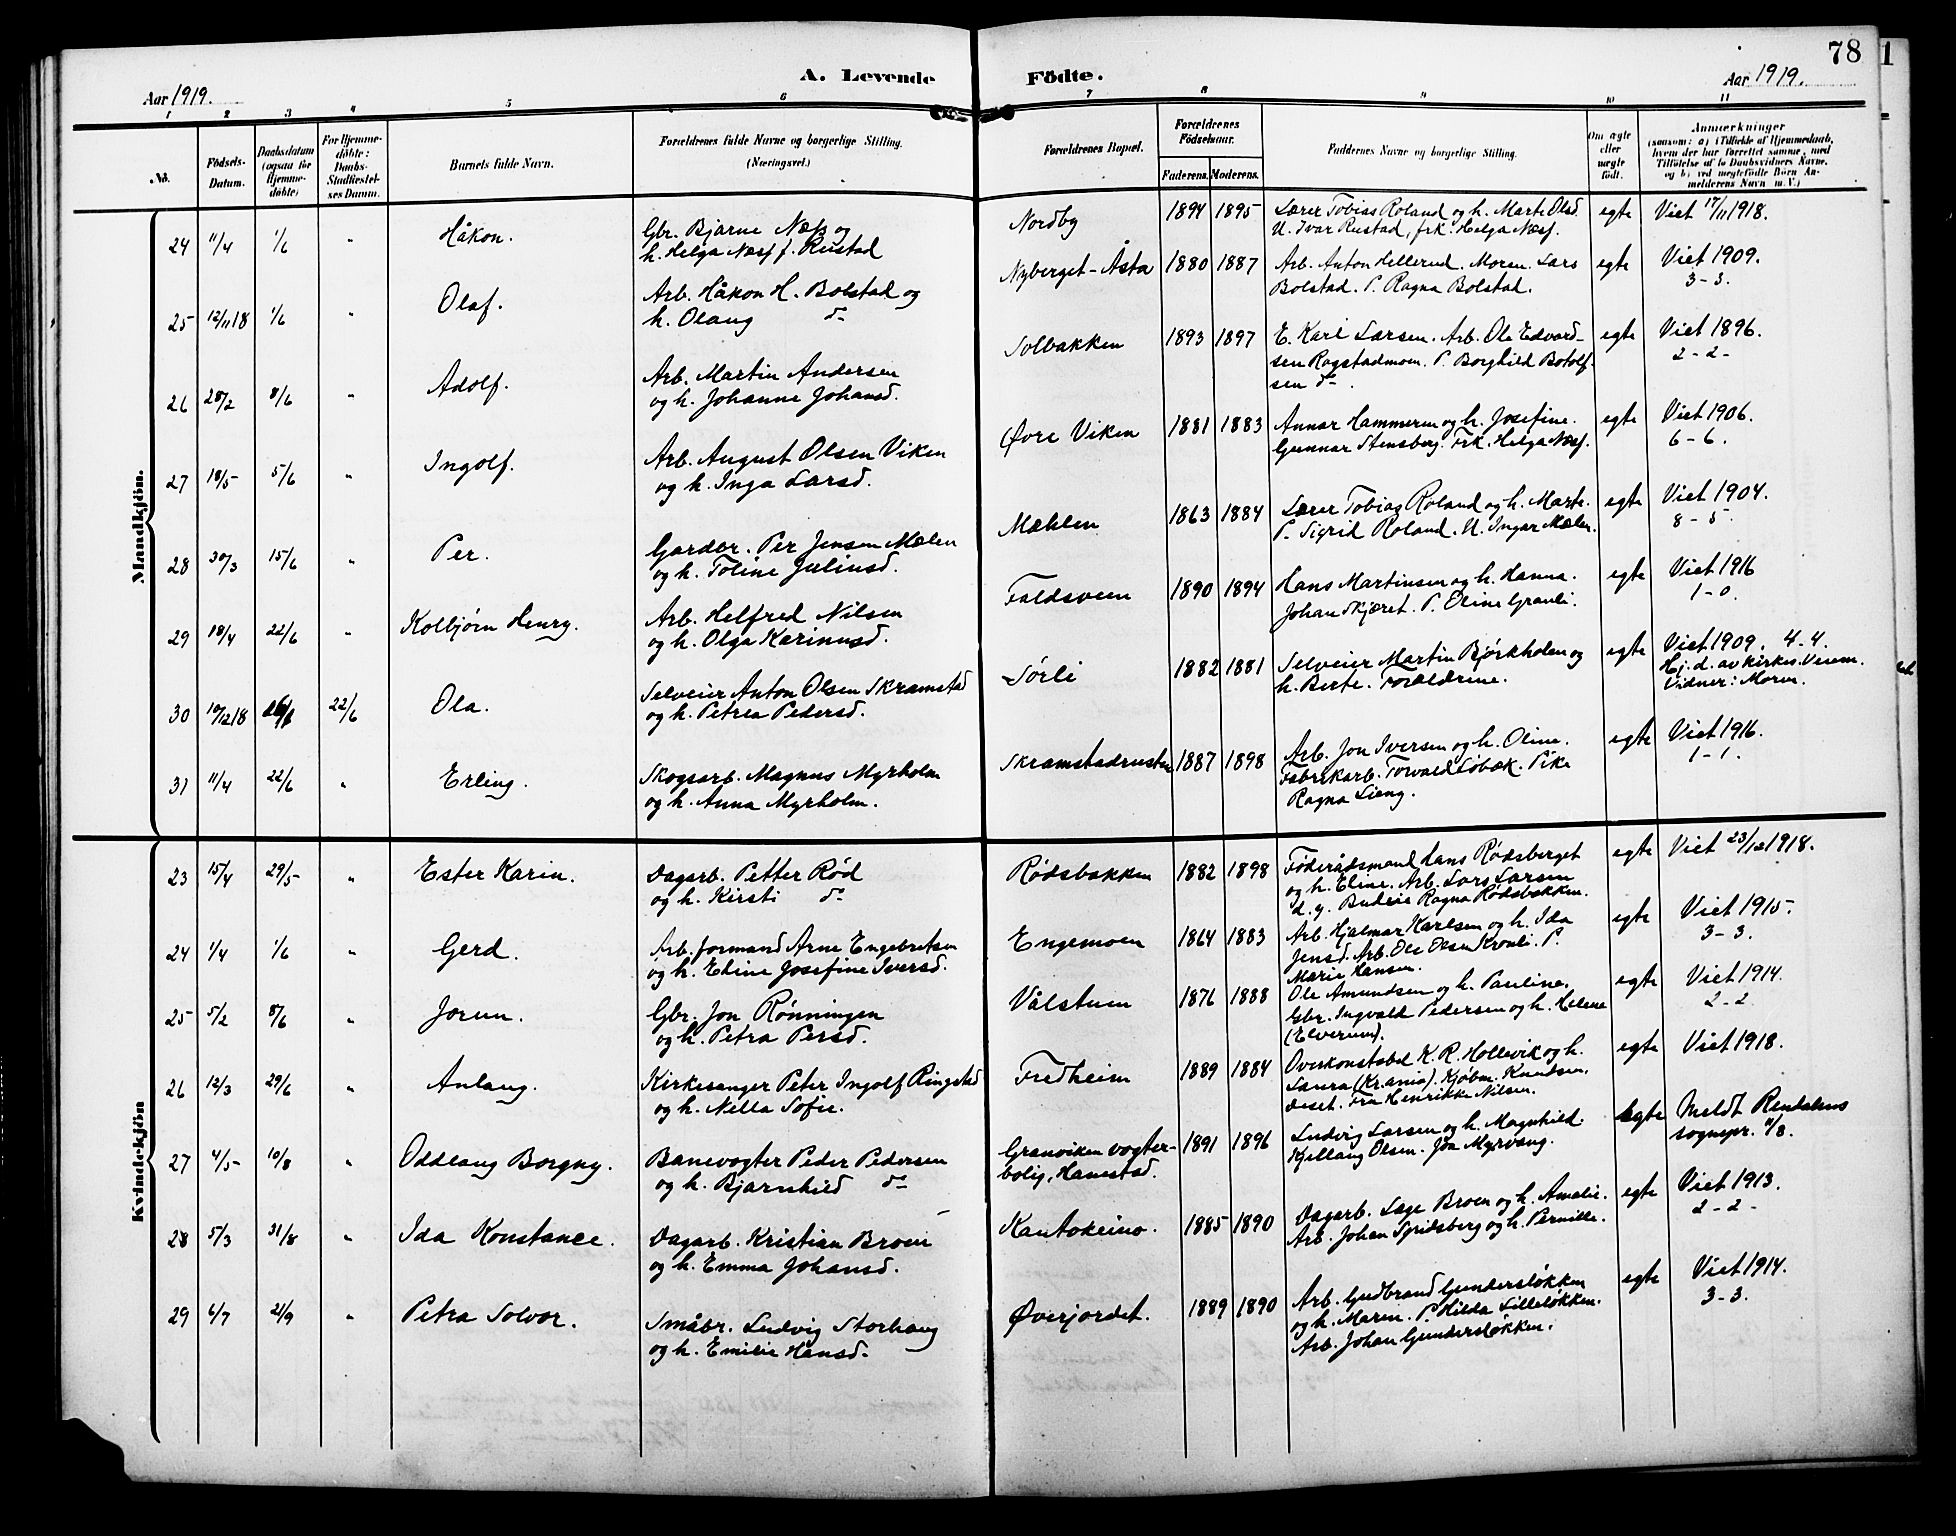 78
A. Levende Födte.
Aar 1919.
Aar 1919.
1 2 3 4 5 6 7 8 9 10 11
No.
Födsels-Datum.
Daabsdatum (ogsaa for Hjemmedöbte)
For Hjemmedöbte: Daabs Stadfæstelses Datum.
Barnets fulde Navn.
Forældrenes fulde Navne og borgerlige Stilling. (Næringsvei.)
Forældrenes Bopæl.
Forældrenes Födselsaar.
Faderens. Moderens.
Faddernes Navne og borgerlige Stilling.
Om ægte eller uægte födt.
Anmærkninger
(saasom: a) i Tilfælde af Hjemmedaab, hvem der har forrettet samme, med Tilföielse af to Daabsvidners Navne, og b) ved uægtefödte Börn Anmelderens Navn m. V.)
Mandkjön.
24 11/4 1/6 " Håkon.
Gbr. Bjarne Næss og
h. Helga Næss f. Rustad
Nordby 1894 1895
Lærer Tobias Roland og h. Marte Olsd.
U. Ivar Rustad, frk. Helga Næss.
egte Viet 17/11 1918.
25 12/11 18 1/6 " Olaf.
Arb. Håkon H. Bolstad og
h. Olaug do
Nyberget - Åsta 1880 1887
Arb. Anton Hellerud. Moren. Lars
Bolstad. P. Ragna Bolstad.
egte Viet 1909.
3-3.
26 28/2 8/6 " Adolf.
Arb. Martin Andersen
og h. Johanne Johansd.
Solbakken 1893 1897
E. Karl Larsen. Arb. Ole Edvard-
sen Rogstadmoen. P. Borghild Botolf-
sen do.
egte Viet 1896.
2-2-
27 18/5 5/6 " Ingolf.
Arb. August Olsen Viken
og h. Inga Larsd.
Øvre Viken 1881 1883
Annar Hammeren og h. Josefine.
Gunnar Stensberg. Frk. Helga Næss.
egte Viet 1906.
6-6.
28 30/3 15/6 " Per.
Gardbr. Per Jensen Mælen
og h. Toline Juliusd.
Mæhlen 1863 1884
Lærer Tobias Roland og h. Marte.
P. Sigrid Roland. U. Ingar Mælen.
egte Viet 1904.
8-5.
29 18/4 22/6 " Kolbjørn Henry.
Arb. Helfred Nilsen
og h. Olga Karinusd.
Faldsveen 1890 1894
Hans Martinsen og h. Hanna.
Johan Skjæret. P. Oline Granli.
egte Viet 1916
1-0.
30 10/12 18 22/6 Ola.
Selveier Anton Olsen Skramstad
og h. Petrea Pedersd.
Sørli 1882 1881
Selveier Martin Bjørkholen og
h. Berte. Forældrene.
egte Viet 1909. 4-4.
Hj.d. av kirkes. Veiem.
Vidner: Moren.
31 11/4 22/6 " Erling.
Skogsarb. Magnus Myrholm
og h. Anna Myrholm.
Skramstadrusten 1887 1898
Arb. Jon Iversen og h. Oline.
Fabrikarb. Torvald Løbæk. Pike
Ragna Lieng.
egte Viet 1916.
1-1.
Kvindekjön
23 15/4 29/5 " Ester Karin.
Dagarb. Petter Rød
og h. Kirsti do
Rødsbakken 1882 1898
Føderådsmand Hans Rødsberget
og h. Eline. Arb. Lars Larsen
d.y. Budeie Ragna Rødsbakken.
egte Viet 23/12 1918.
24 1/4 1/6 " Gerd.
Arb. formand Arne Engebretsen
og h. Eline Josefine Iversd.
Engemoen 1864 1883
Arb. Hjalmar Karlsen og h. Ida
Jensd. Arb. Ole Olsen Kvali. P.
Marie Hansen.
egte Viet 1915.
3-3.
25 5/2 8/6 " Jorun.
Gbr. Jon Rønningen
og h. Petra Persd.
Vålstuen 1876 1888
Ole Amundsen og h. Pauline.
Gbr. Ingvald Pedersen og h. Helene
(Elverum).
egte Viet 1914.
2-2
26 12/3 29/6 " Anlaug.
Kirkesanger Peter Ingolf Ringstad
og h. Nella Sofie.
Fredheim 1889 1884
Overkonstabel K. R. Hollevik og h.
Laura (Kr.ania). Kjøbm. Knudsen,
Deset. Fru Henrikke Nilsen.
egte Viet 1918.
27 4/5 10/8 " Oddlaug Borgny.
Banevogter Peder Pedersen
og h. Bjarnhild do
Granviken vogter-
bolig, Hanestad. 1891 1896
Ludvig Larsen og h. Magnhild.
Kjellaug Olsen. Jon Myrvang.
egte Meldt Rendalens
sognepr. 11/8.
28 5/3 31/8 " Ida Konstance.
Dagarb. Kristian Broen
og h. Emma Johansd.
Kautokeino. 1885 1890
Dagarb. Lage Broen og h. Amalie.
Arb. Johan Spidsberg og h. Pernille.
egte Viet 1913.
2-2-
29 6/7 21/9 " Petra Solvor.
Småbr. Ludvig Storhaug
og h. Emilie Hansd.
Øverjordet. 1889 1890
Arb. Gudbrand Gundersløkken
og h. Maren. P. Hilda Lilleløkken.
Arb. Johan Gundersløkken.
egte Viet 1914.
3-3.